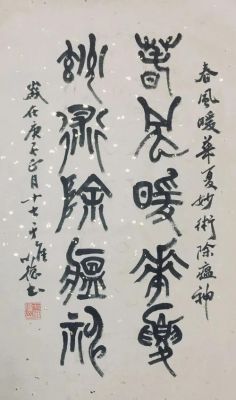 春風暖華夏妙術除瘟神
春風暖華夏
妙術除瘟神
歲在庚子正月十七
書